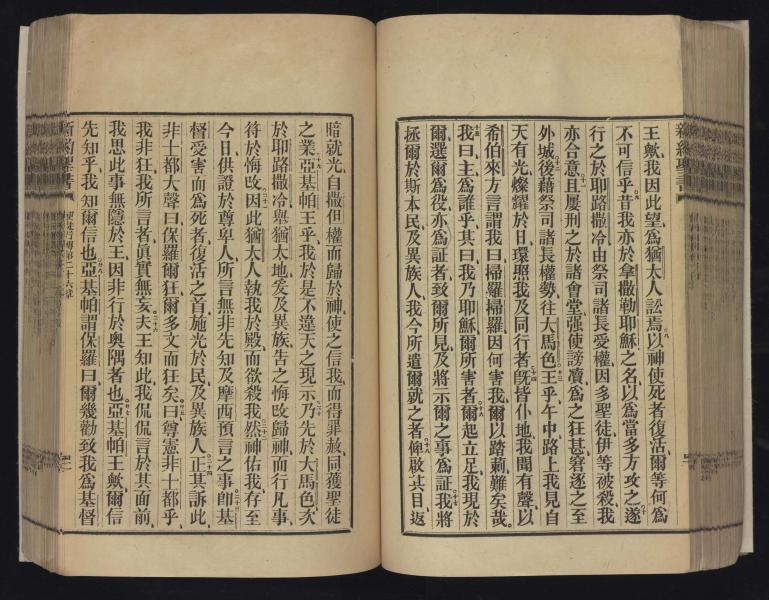 王歟、我因此望、爲猶太人訟焉、以神使死者復活、爾等何爲
不可信乎、昔我亦於拿撒勒耶穌之名、以爲當多方攻之、遂
行之於耶路撒冷、由祭司諸長愛權、因多聖徒、伊等被殺、我
亦合意、且屢刑之於諸會堂、强使謗瀆、爲之狂甚、窘逐之至
外城、後藉祭司諸長權勢、往大馬色、王乎、午中、路上、我見自
天有光、燦耀於日、環照我及同行者、旣皆仆地、我聞有聲、以
希伯來方言謂我曰、掃羅掃羅、因何害我、爾以踏刺難矣哉。
我曰、主爲誰乎、其曰、我乃耶穌、爾所害者、爾起立足、我現於
爾、選爾爲役、亦爲証者、致爾所見、及將示爾之事爲証、我將
拯爾於斯本民、及異族人、我今所遣爾就之者、俾啟其目、返
暗就光、自撒但權而歸於神、使之信我、而得罪赦、同獲聖徒
之業、亞基帕王乎、我於是不違天之現示、乃先於大馬色、次
於耶路撒冷、與猶太地、爰及異族、吿之悔改歸神、而行凡事
符於悔改、因此猶太人執我於殿、而欲殺我、然神佑我、存至
今日、供證於尊卑人、所言無非先知及摩西預言之事、卽基
督受害、而爲死者復活之首、施光於民及異族人、正其訴此、
非士都大聲曰、保羅、爾狂、爾多文而狂矣、曰、尊憲非士都乎、
我非狂、我所言者、眞實無妄、夫王知此、我侃侃言於其面前、
我思此事無隱於王、因非行於奧隅者也、亞基帕王歟、爾信
先知乎、我知爾信也、亞基帕謂保羅曰、爾幾勸致我爲基督
新約聖書 使徒行傳第二十六章